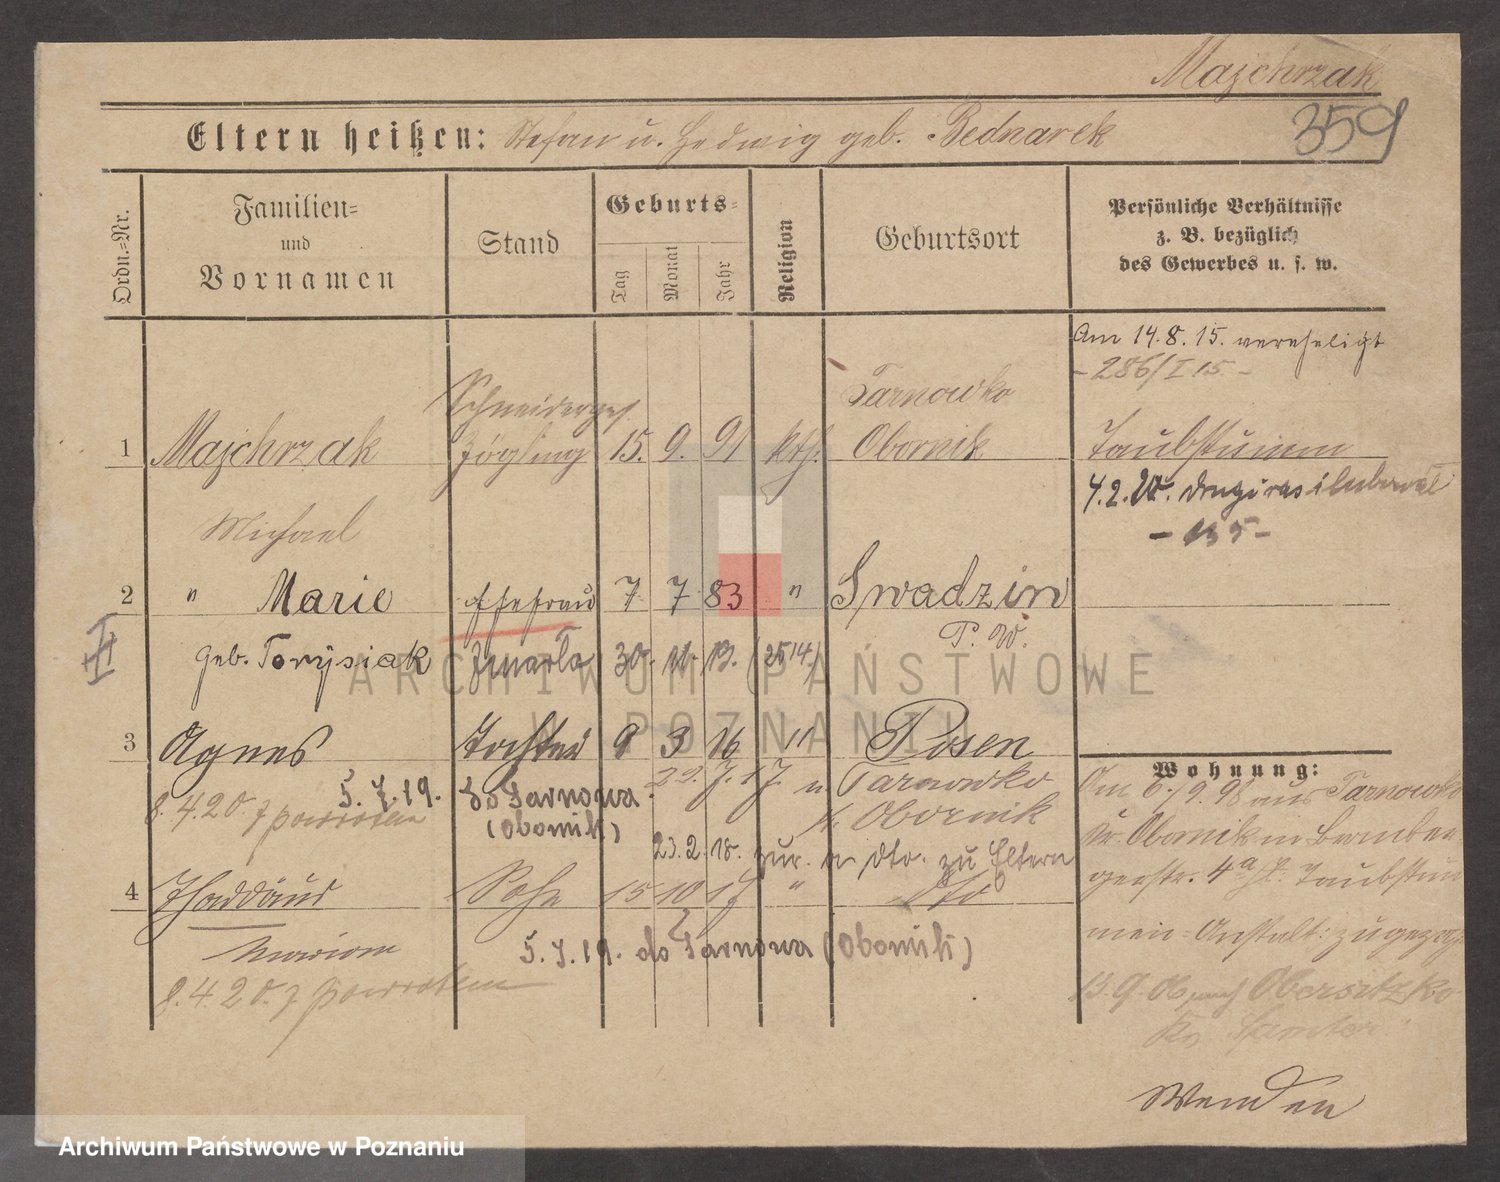 Majchrzak
359
Eltern heißen: Stefan u. Hedwig geb. Bednarek
Ordn.=Nr.
Familien=
und
Vornamen
Stand
Geburts=
Tag
Monat
Jahr
Religion
Geburtsort
Persönliche Verhältnisse
z. B. bezüglich
des Gewerbes u. s. w.
Am 14.8.15. vereheligt
- 286/I 15 -
Schneiderges.
Tarnowko
1 Majchrzak Zögling 15. 9. 91 kth. Obornik Taubstumm
4.2.20. drugi raz
Michael
2 " Marie Ehefrau 7 7 83 " Swadzin
II geb. Tomysiak zmarła 30. 13. P. W.
3 Agnes Tochter 9 3 16 " Posen
Wohnung:
5.7.19. do Tarnowa 29.7.17. n Tarnowko
8.4.20 z powrotem (Obornik) k. Obornik
23.2.18. zur. v. dto. zu Eltern
4 Thaddäus Sohn 15 10 17 " dto
Marian
5.7.19. do Tarnowa (Obornik)
8.4.20. z powrotem
Am 6./9.98 aus Tarnowko
Kr. Obornik n Bromber
gerstr. 4a Taubstum
men=Anstalt: zugezogen
13.9.06 nach Obersitzko
Kr. Samter
Wenden
ARCHIWUM PAŃSTWOWE
W POZNANIU
Archiwum Państwowe w Poznaniu